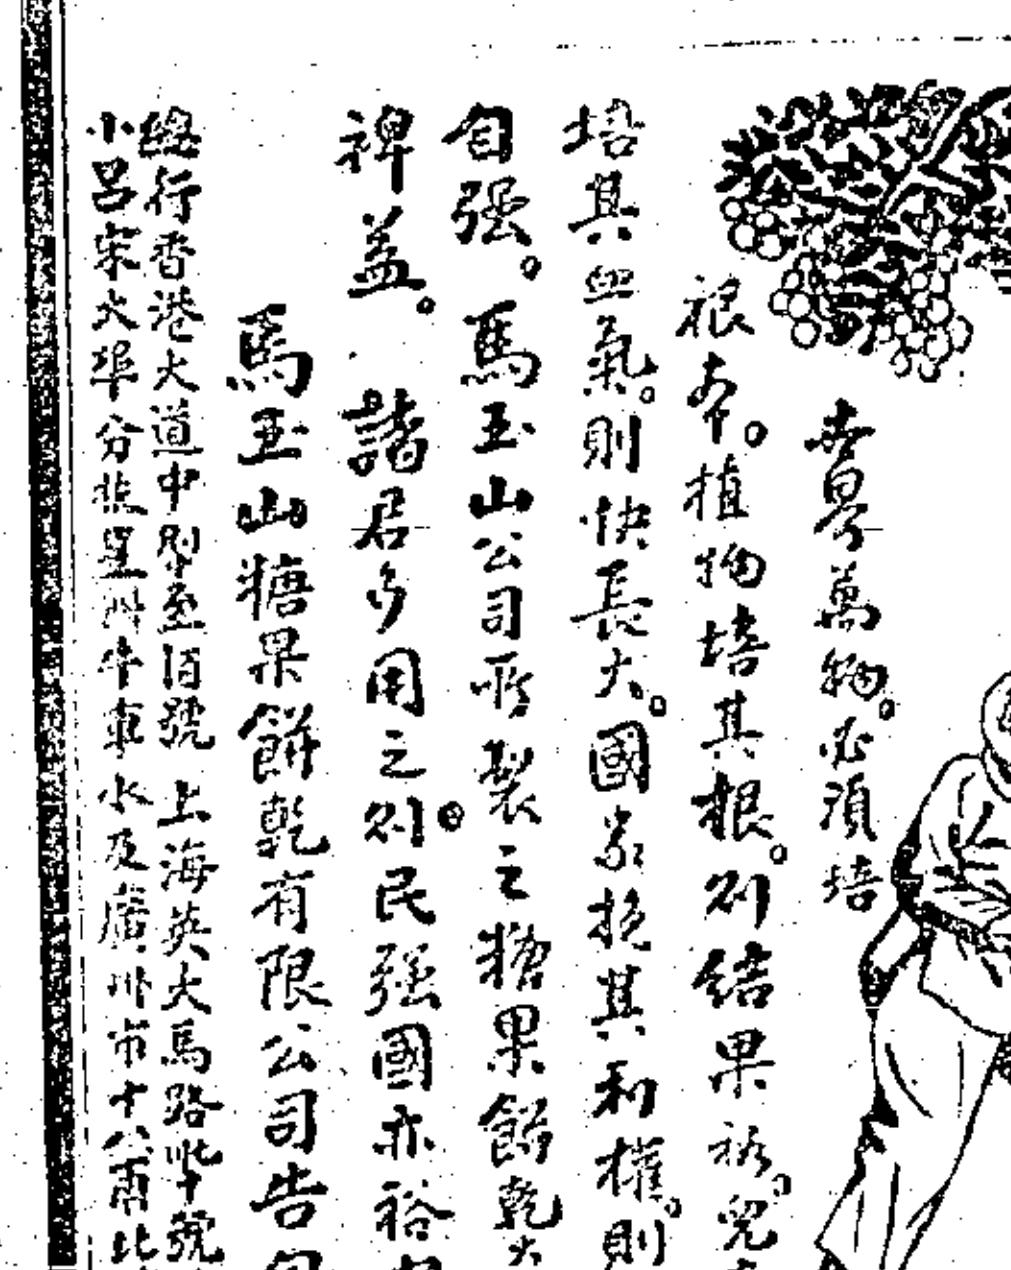 世界萬物。必須培
根本。植物培其根。則結果裕。兒
培其血氣。則快長大。國家挽其利權。則
自强。馬玉山公司所製之糖果餅乾大
裨益。諸君多用之則民强國亦裕
馬玉山糖果餅乾有限公司告白
總行香港大道中 百號 上海英大馬路 號
小呂宋大埠分 星洲牛車水及廣州市十八甫北